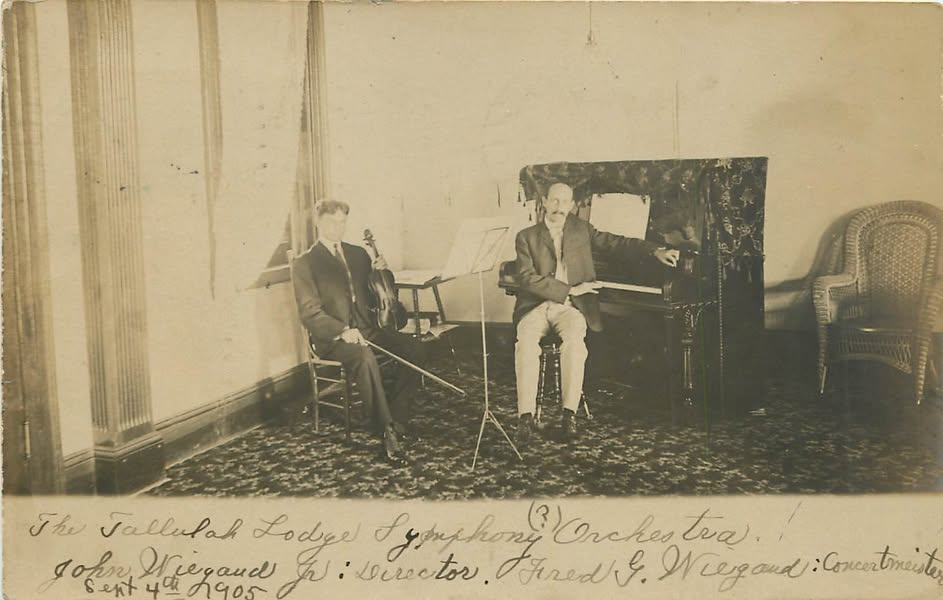 The Tallulah Lodge Symphony (?) Orchestra. !
John Wiegand Jr : Director. Fred G. Wiegand : Concertmeister
Sept 4th 1905